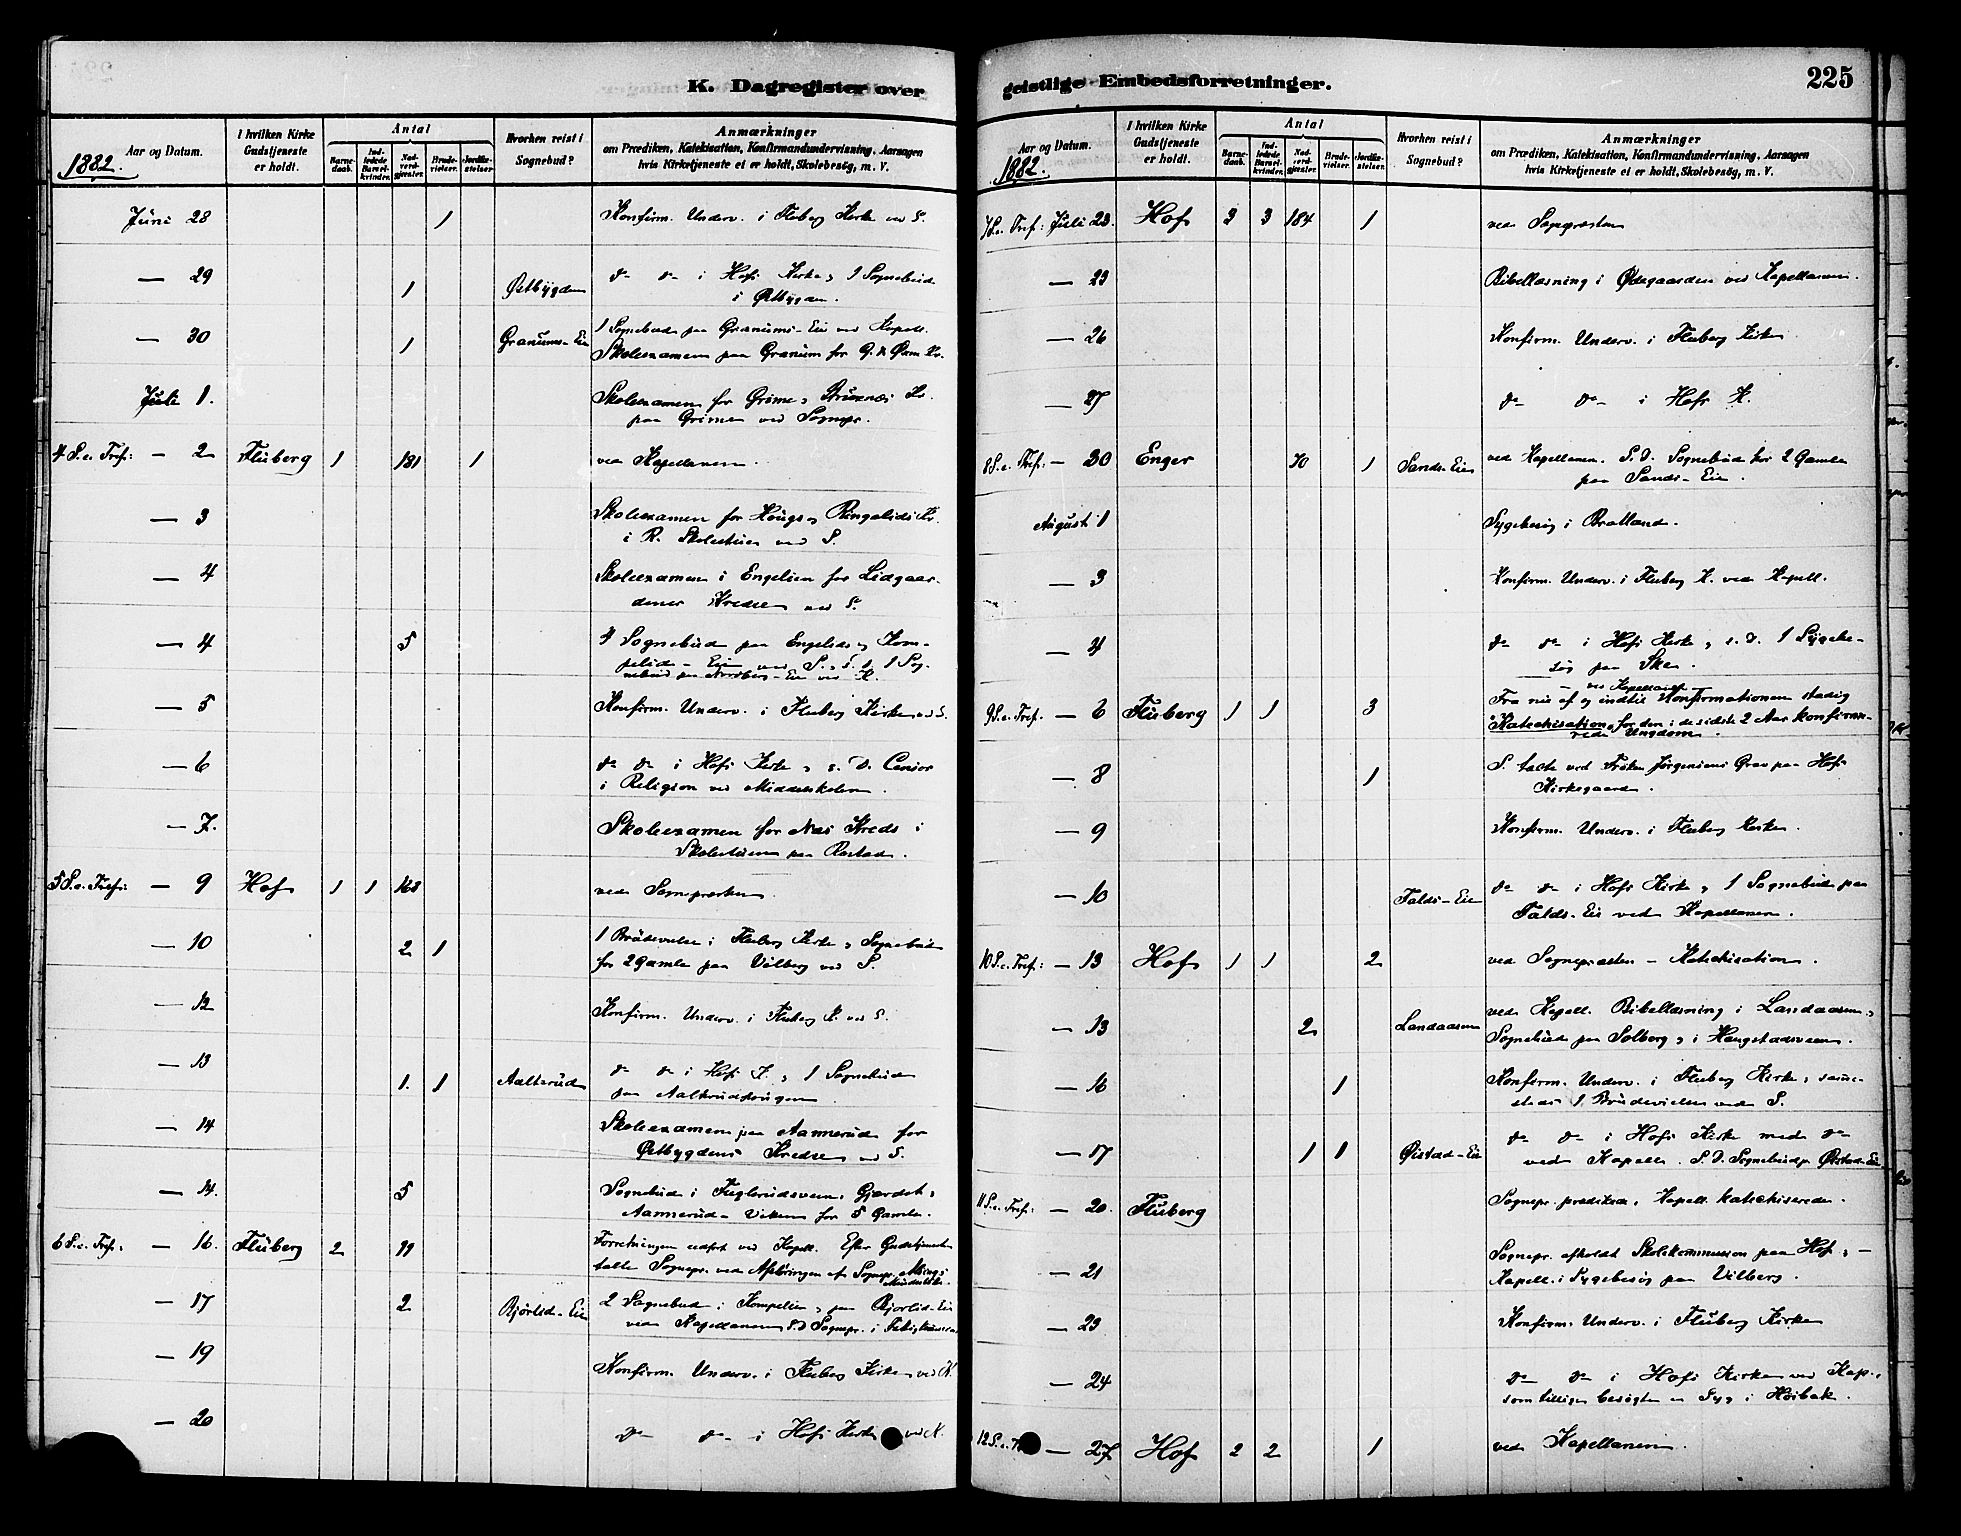 K. Dagregister over
Aar og Datum.
1882.
I hvilken Kirke Gudstjeneste er holdt.
Antal
Barnedaab.
Indledede Barselkvinder.
Nadverdgjester.
Brudevielser.
Jordfæstelser.
Hvorhen reist i Sognebud?
Anmærkninger
om Prædiken, Katekisation, Konfirmandundervisning, Aarsagen
hvis Kirketjeneste ei er holdt, Skolebesög, m. V.
Juni 28 1 Konfirm. Underv. i Fluberg Kirke ved S.
— 29 1 Østbygden do do i Hofs Kirke, 1 Sognebud
i Østbygden.
— 30 1 Granums-Eie 1 Sognebud paa Granums-Eie ved Kapell.
Skoleexamen paa Granum for G. &
Juli 1. Skoleexamen for Grime
paa Grimen ved Sognepr.
4 S. e. Tref: — 2 Fluberg 1 181 1 ved Kapellanen.
— 3 Skoleexamen for Hougs
i R. Skolestuen ved S.
— 4 Skoleexamen i Engelien for Lidgaar-
denes Kredse ved S.
— 4 5 4 Sognebud paa Engelids
— 5 Konfirm. Underv. i Fluberg Kirke ved S.
— 6 do do i Hofs Kirke, s. D. Censor
i Religion ved Middelskolen.
— 7. Skoleexamen for Næs Kreds i
Skolestuen paa Rostad.
5 S. e. Tref: — 9 Hof 1 1 168 ved Sognepræsten.
— 10 2 1 1 Brudevielse i Fluberg Kirke, Sognebud
for 2 Gamle paa Vilberg ved S.
— 12 Konfirm. Underv. i Fluberg K. ved S.
— 13 1. 1 Aalterud do do i Hofs K., 1 Sognebud
paa
— 14 Skoleexamen paa Aannerud for
Østbygdens Kredse ved S.
— 14. 5 Sognebud i Fuglerudsveen, Gjerdet,
Aannerud- Viken for 5 Gamle.
6 S. e. Tref: — 16. Fluberg 2 99 Forretningen udført ved Kapell. Efter Gudstjenesten
talte Sognepr. ved Afsløringen af Sognepr.
— 17 2 Bjørlid-Eie 2 Sognebud i Kompelien, paa Bjørlid-Eie
ved Kapellanen S.D. Sognepr. i
— 19 Konfirm. Underv. i Fluberg Kirke ved K.
— 20 do do i Hofs Kirke ved K.
geistlige Embedsforretninger.
225
Aar og Datum.
1882.
I hvilken Kirke Gudstjeneste er holdt.
Antal
Barnedaab.
Indledede Barselkvinder.
Nadverdgjester.
Brudevielser.
Jordfæstelser.
Hvorhen reist i Sognebud?
Anmærkninger
om Prædiken, Katekisation, Konfirmandundervisning, Aarsagen
hvis Kirketjeneste ei er holdt, Skolebesög, m. V.
7 S. e. Tref: Juli 23. Hof 3 3 184 1 ved Sognepræsten
— 23 Bibellæsning i Ødegaarden ved Kapellanen.
— 26 Konfirm. Underv. i Fluberg Kirke
— 27 do do i Hofs K.
8 S. e. Tref: — 30 Enger 70 1 Sands-Eie ved Kapellanen. S. D. Sognebud for 2 Gamle
paa Sands-Eie.
August 1 Sygebesøg i Bratland.
— 3 Konfirm. Underv. i Fluberg K. ved Kapell.
— 4 do do i Hofs Kirke, s. D. 1 Sygebe-
søg paa
9 S. e. Tref. — 6 Fluberg 1 1 3 — ved Kapellanen —
Fra nu af og indtil Konfirmationen stadig
Katechisation for den i de sidste 2 Aar konfirme-
rede Ungdom.
— 8 1 S. talte ved Frøken Jørgensens Grav paa Hofs
Kirkegaard.
— 9 Konfirm. Underv. i Fluberg Kirke.
— 10 Falds-Eie do do i Hofs Kirke, 1 Sognebud paa
Falds-Eie ved Kapellanen.
10 S. e. Tref: — 13 Hof 1 1 2 ved Sognepræsten — Katechisation.
— 13 2 Landaasen ved Kapell. Bibellæsning i Landaasen,
Sognebud paa Solberg, i Haugstadsveen.
— 16 1 Konfirm. Underv. i Fluberg Kirke, samme-
steds 1 Brudevielse ved S.
— 17 1 1 Øistad-Eie do do i Hofs Kirke med do
ved Kapell. S. D. Sognebud p. Øistad-Eie
11 S. e. Tref: — 20. Fluberg Sognepr. prædikede, Kapell. katechiserede.
— 21 Sognepr. afholdt Skolekommission paa Hof, —
Kapell. i Sygebesøg paa Vilberg.
— 23 Konfirm. Underv. i Fluberg Kirke
— 24 do do i Hofs Kirke ved Kap.,
som tillige besøgte en Syg i Høibak.
12 S. e. — 27 Hof 2 2 1 ved Kapellanen.